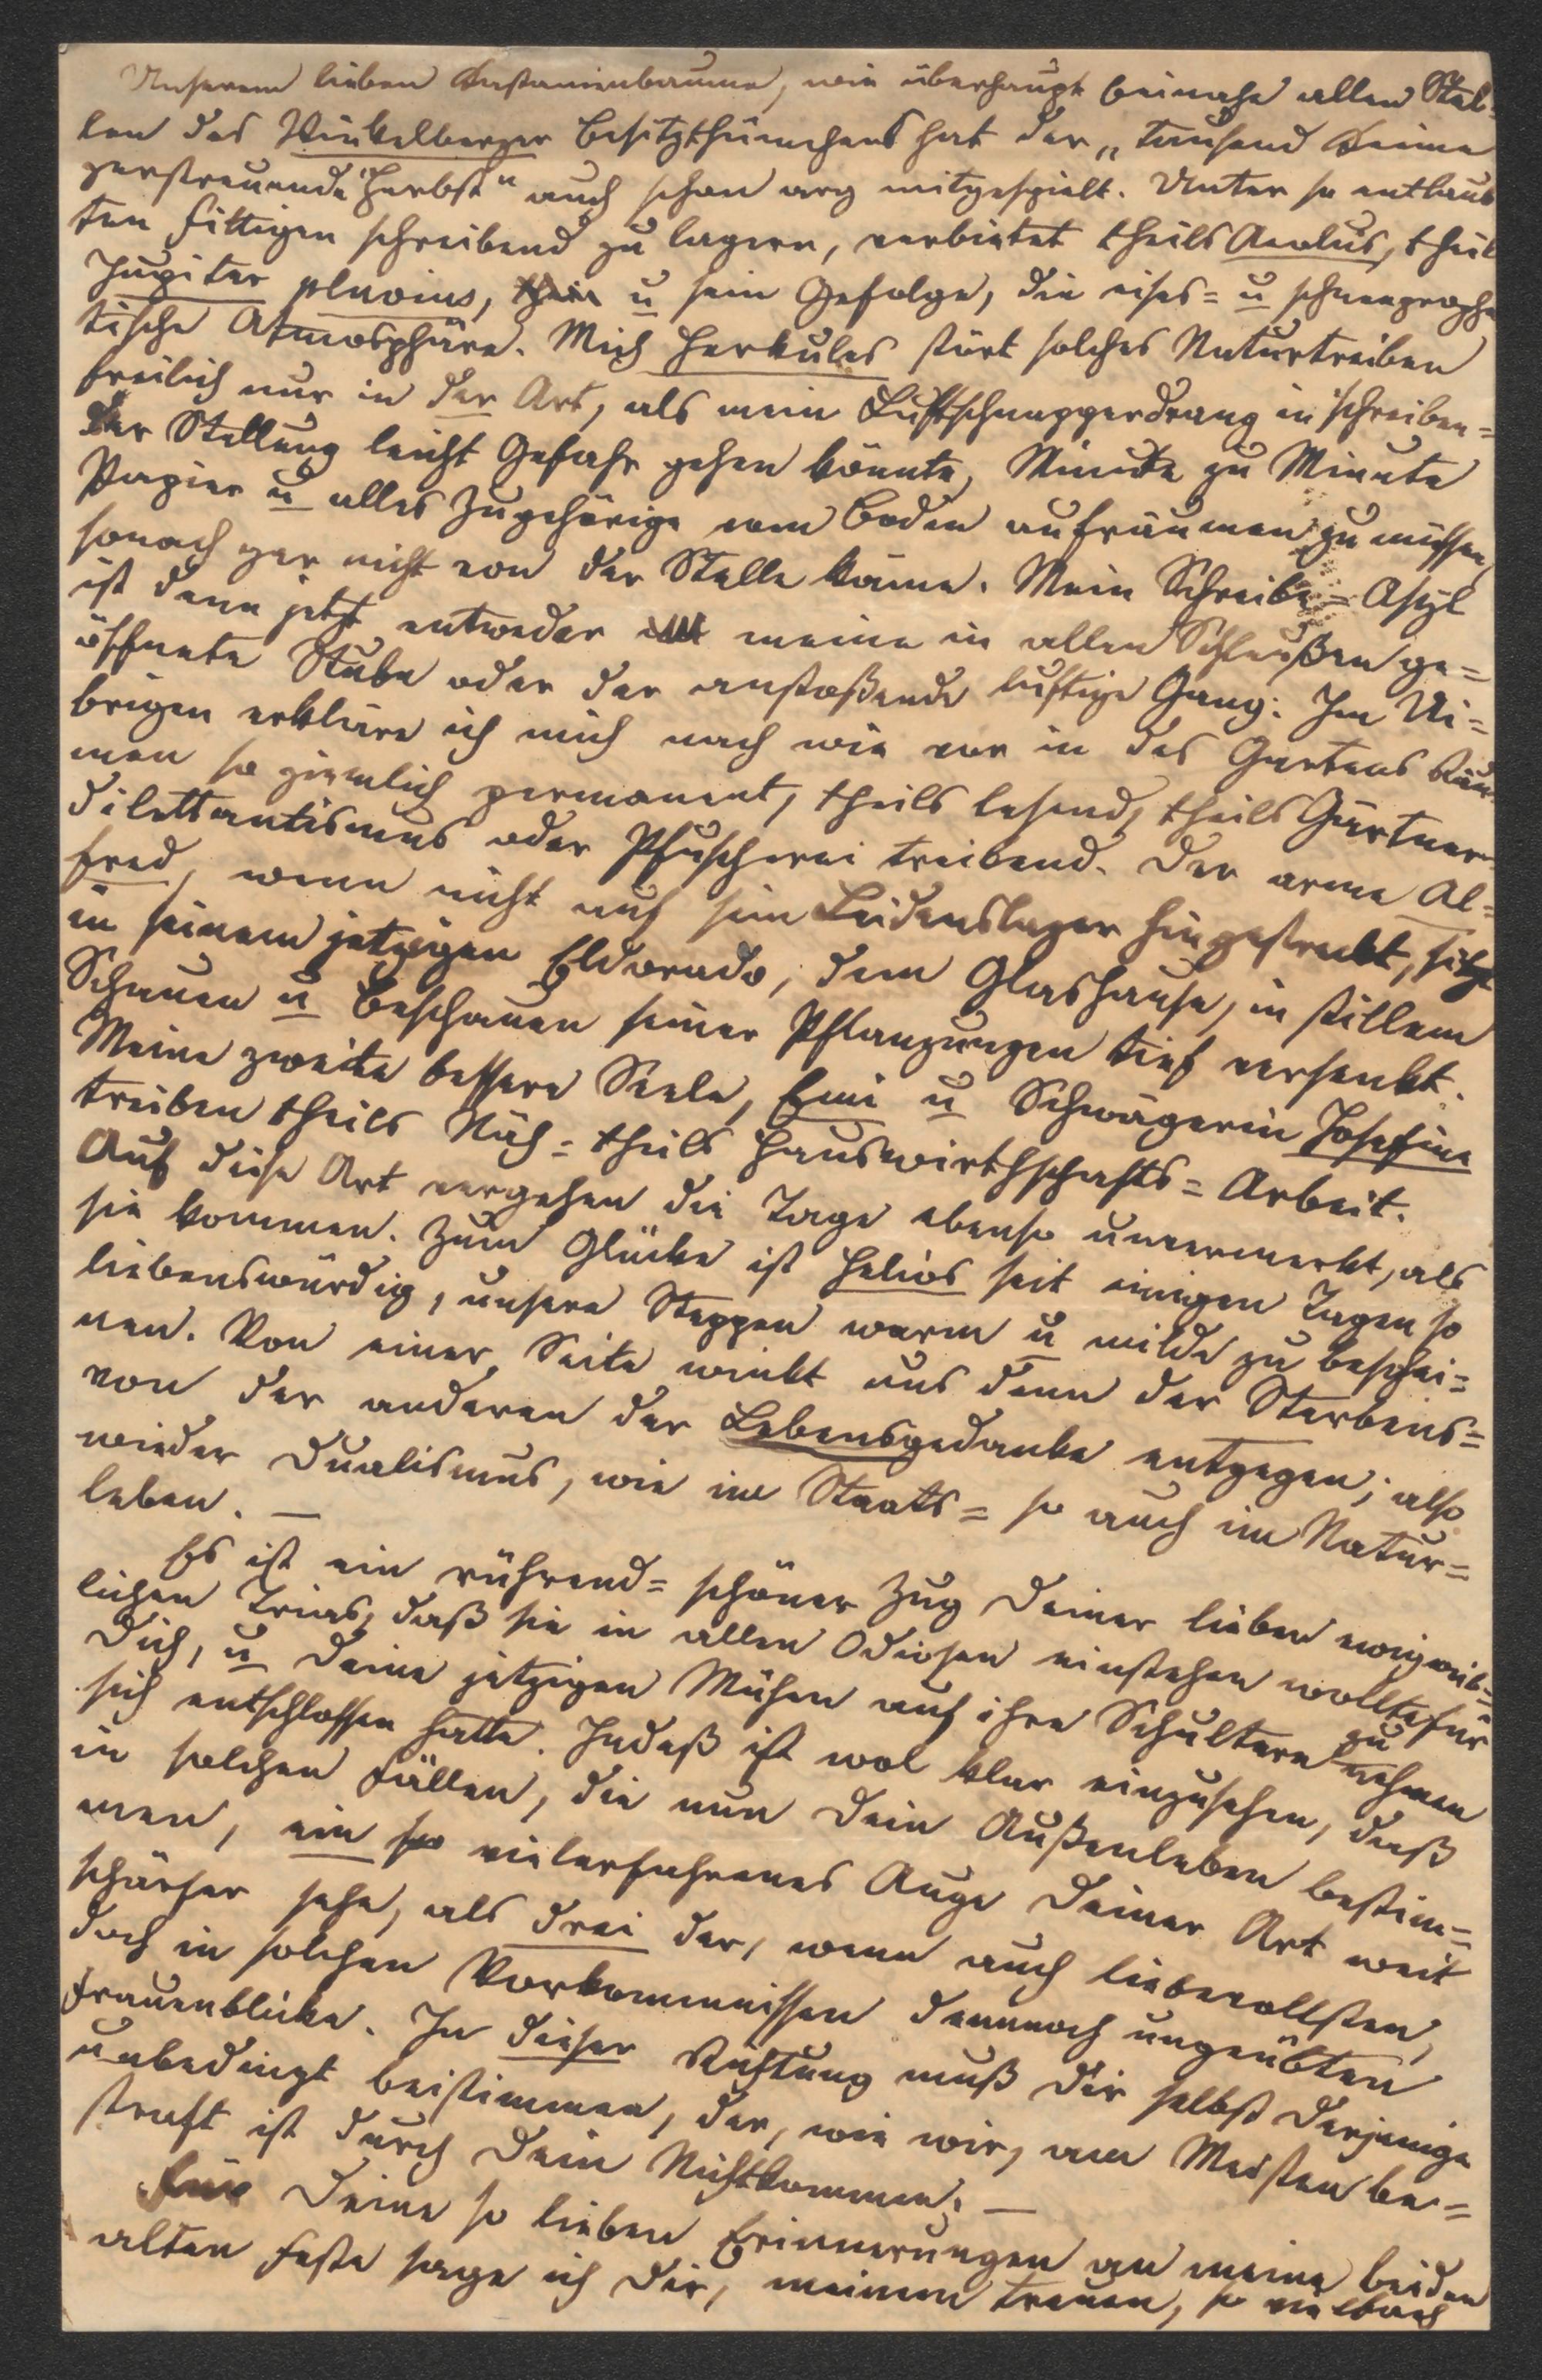 Unserem lieben Kastanienbaume, wie überhaupt beinahe allen Stel-
len des Winkelberger Besitzthümchens hat der „tausend Keime
zerstreuende Herbst“ auch schon arg mitgespielt. Unter so entlaub
ten Fittigen schreibend zu lagern, verbietet theils Aeolus, theil
Jupiter pluvius, u sein Gefolge, die eises= u schneeprophe
tische Atmosphäre. Mich Herkules stört solches Naturtreiben
freilich nur in der Art, als mein Luftschnapperdrang in schreiben=
der Stellung leicht Gefahr gehen könnte, Minute zu Minute
Papier u alles Zugehörige vom Boden aufräumen zu müssen,
sonach gar nicht von der Stelle käme. Mein Schreibe=Asyl
ist denn jetzt entweder meine in allen Schleußen ge=
öffnete Stube oder der anstoßende luftige Gang. Im Ui=
brigen erkläre ich mich nach wie vor in des Gartens Räu
men so ziemlich permanent, theils lesend, theils Gärtner-
dilettantismus oder Pfuscherei treibend. Der arme Al=
fred, wenn nicht auf sein Leidenslager hingestreckt, sitzt
in seinem jetzigen Eldorado, dem Glashause, in stillem
Schauen u Beschauen seiner Pflanzungen tief versenkt.
Meine zweite bessere Seele, Emi u Schwägerin Josefine
treiben theils Näh= theils Hauswirthschafts=Arbeit.
Auf diese Art vergehen die Tage ebenso unvermerkt, als
sie kommen. Zum Glücke ist Helios seit einigen Tagen so
liebenswürdig, unsere Steppen warm u milde zu beschei=
nen. Von einer Seite winkt uns denn der Sterbens=
von der anderen der Lebensgedanke entgegen; also
wieder Dualismus, wie im Staats= so auch im Natur=
leben. —
Es ist ein rührend=schöner Zug Deiner lieben ewigweib=
lichen Trias, daß sie in allen Odiosen einstehen wollte für
Dich, u Deine jetzigen Mühen auf ihre Schultern zu nehmen
sich entschlossen hatte. Indeß ist wol klar einzusehen, daß
in solchen Fällen, die nun Dein Außenleben bestim=
men, ein so vielerfahrenes Auge Deiner Art weit
schärfer sehe, als drei der, wenn auch liebevollsten,
doch in solchen Vorkommnissen dennoch ungeübten
Frauenblicke. In dieser Richtung muß Dir selbst derjenige
unbedingt beistimmen, der, wie wir, am Meisten be=
straft ist durch Dein Nichtkommen. —
Für Deine so lieben Erinnerungen an meine beiden
alten Feste sage ich Dir, meinem treuen, so